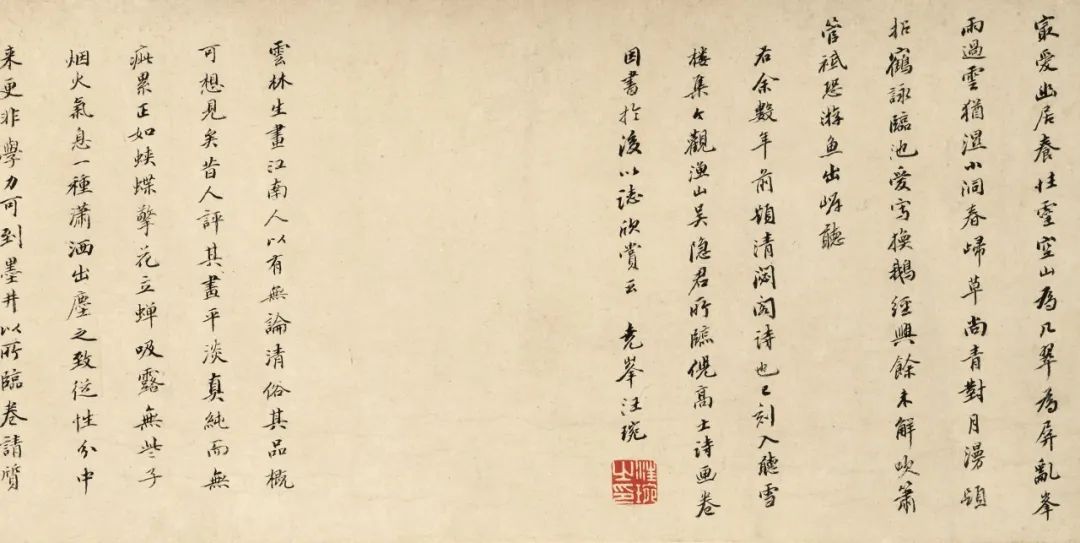 㝡愛幽居養性靈空山為几翠為屏亂峯
雨過雲猶濕小洞春歸草尚青對月漫題
招鶴詠臨池愛寫換鵝經興餘未解吹簫
管祗恐游魚出㟁聽
右余數年前題清閟閣詩也已刻入聽雪
樓集今觀漁山吳隱君所臨倪高士詩画卷
因書於後以誌欣賞云 堯峯汪琬
汪琬之印
雲林生畫江南人以有無論清俗其品概
可想見矣昔人評其畫平淡真純而無
疵累正如蛺蝶擎花立蟬吸露無些子
烟火氣息一種瀟洒出塵之致從性分中
来更非學力可到墨井以所臨卷請質